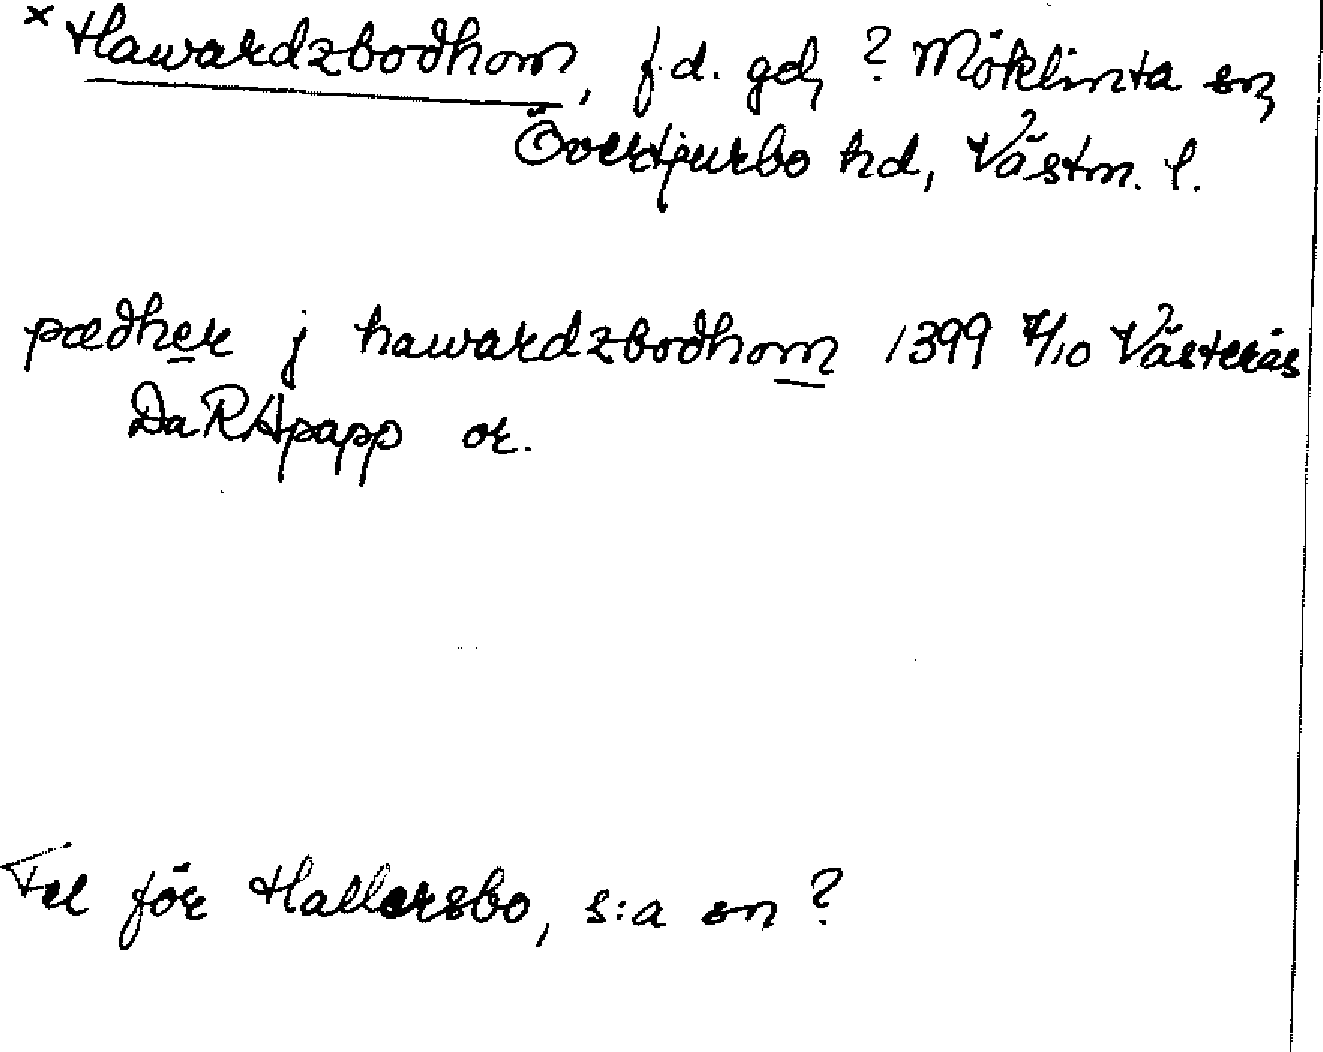 × Hawardzbodhom, f.d. gd, ? Möklinta sn,
Övertjurbo hd, Västm. l.
pædher j hawardzbodhom 1399 7/10 Västerås
DaRApapp or.
Fel för Hallarsbo, s:a sn ?